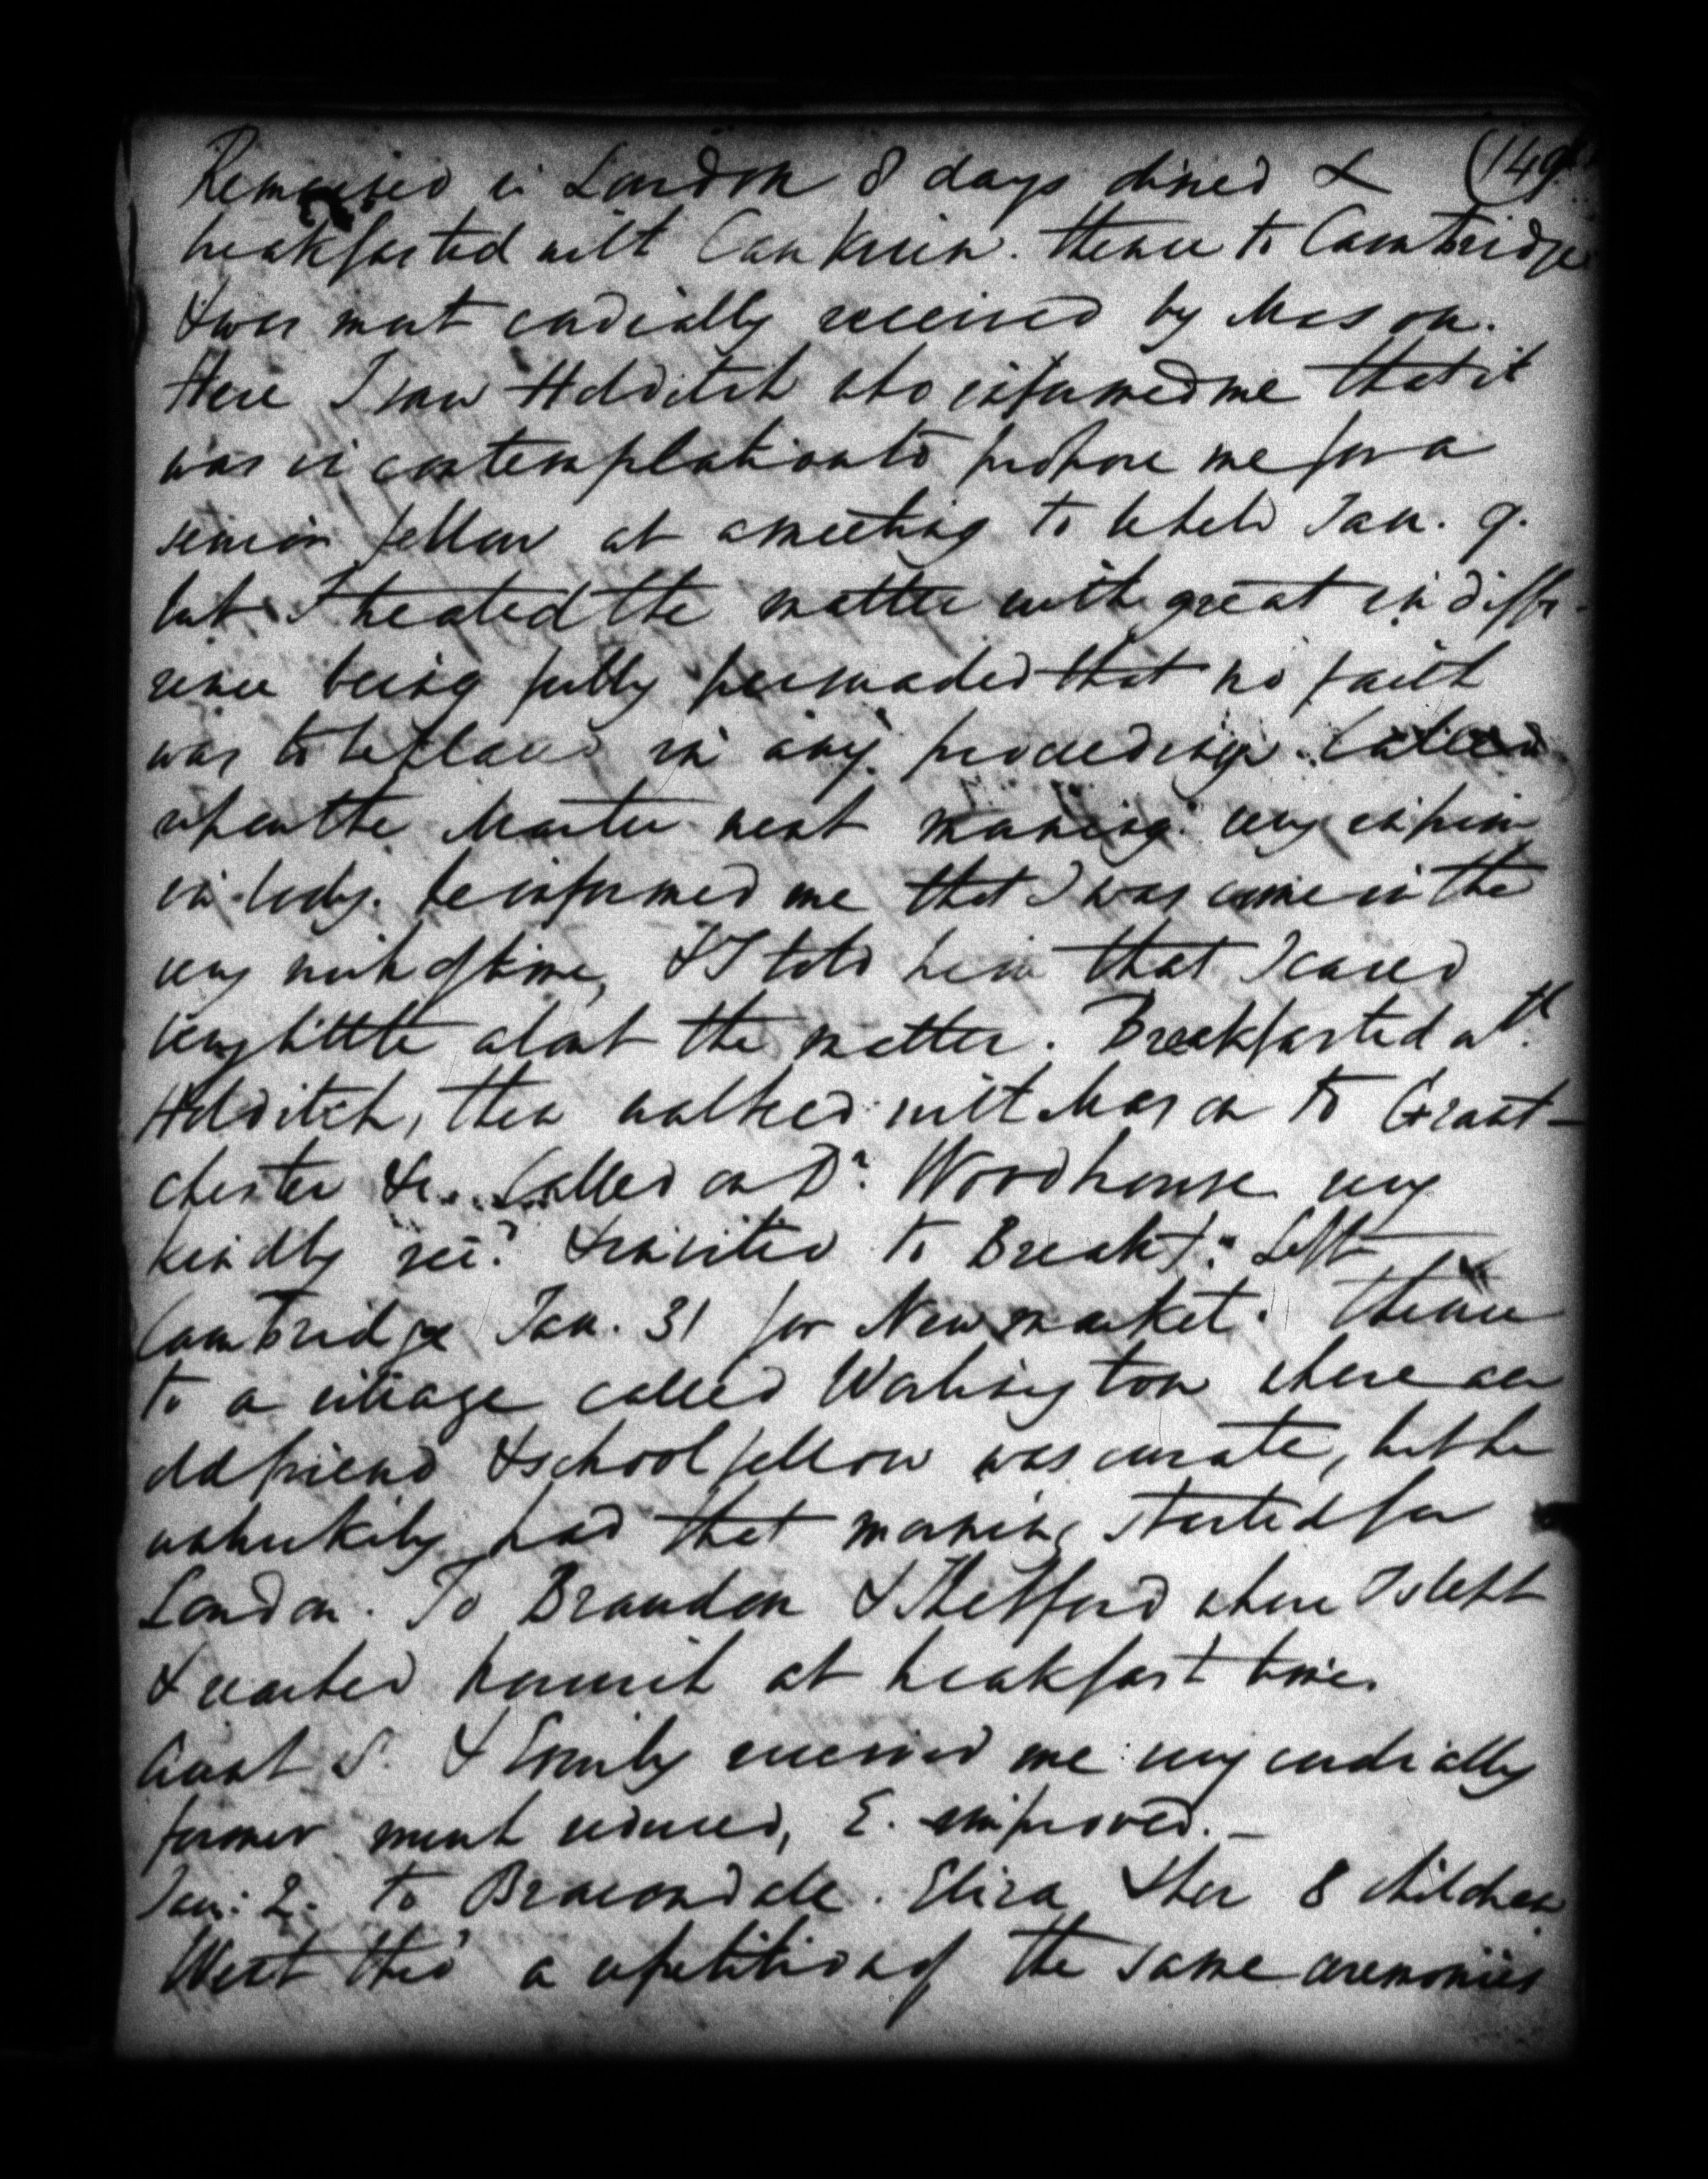 Remained in London 8 days dined & (149
breakfasted with thence to Cambridge
& was most cordially received by Mason.
Here I saw Holditch who informed me that it
was in contemplation to propose me for a
senior fellow at a meeting to be held Jan. 9.
but I treated the matter with great indiffe-
rence being fully persuaded that no faith
was to be placed in any proceedings. Called
upon the Master next morning very infirm
in body. he informed me that I was come in the
very nick of time, & I told him that I cared
very little about the matter. Breakfasted wth.
Holditch, then walked with Mason to Grant-
chester &c. Called on Dr. Woodhouse very
kindly recd. & invited to Breakft. Left
Cambridge Jan. 31 for Newmarket. thence
to a village called Worlington where an
old friend & schoolfellow was curate, but he
unluckily had that morning started for
London. To Brandon & Thetford where I slept
& reached Norwich at breakfast time.
Aunt S. & Emily received me very cordially
former much reduced, E. improved. —
Jan: 2. to Bracondale. Eliza & her 8 children
Went thro' a repetition of the same ceremonies